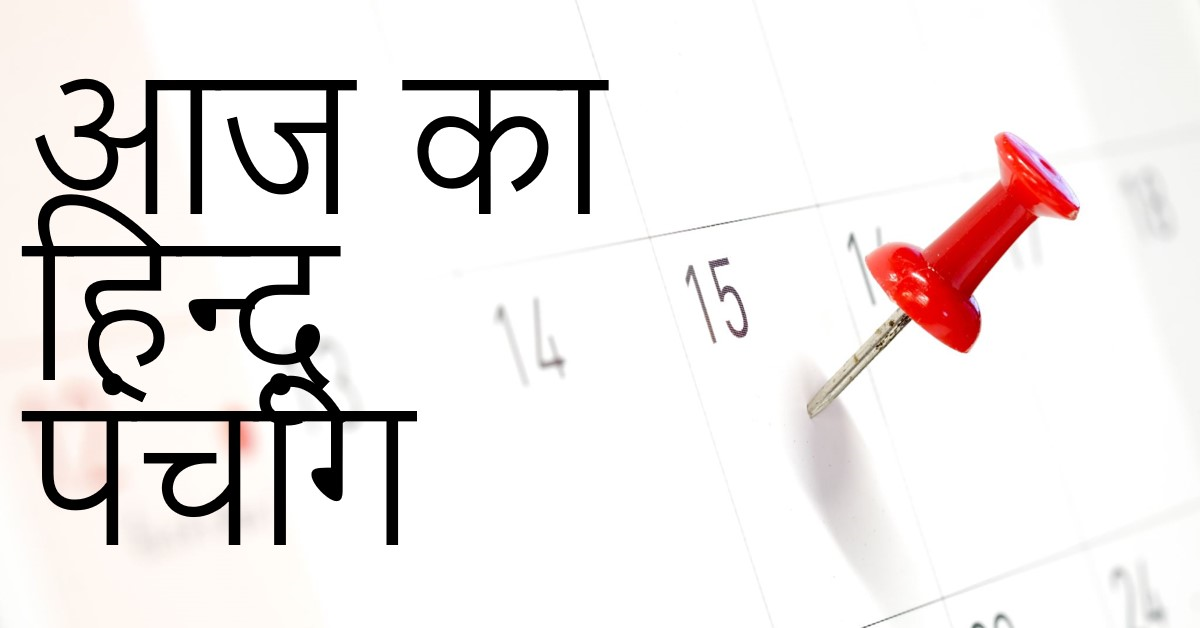 आज का
हिन्दू
पंचांग
14
15
18
24